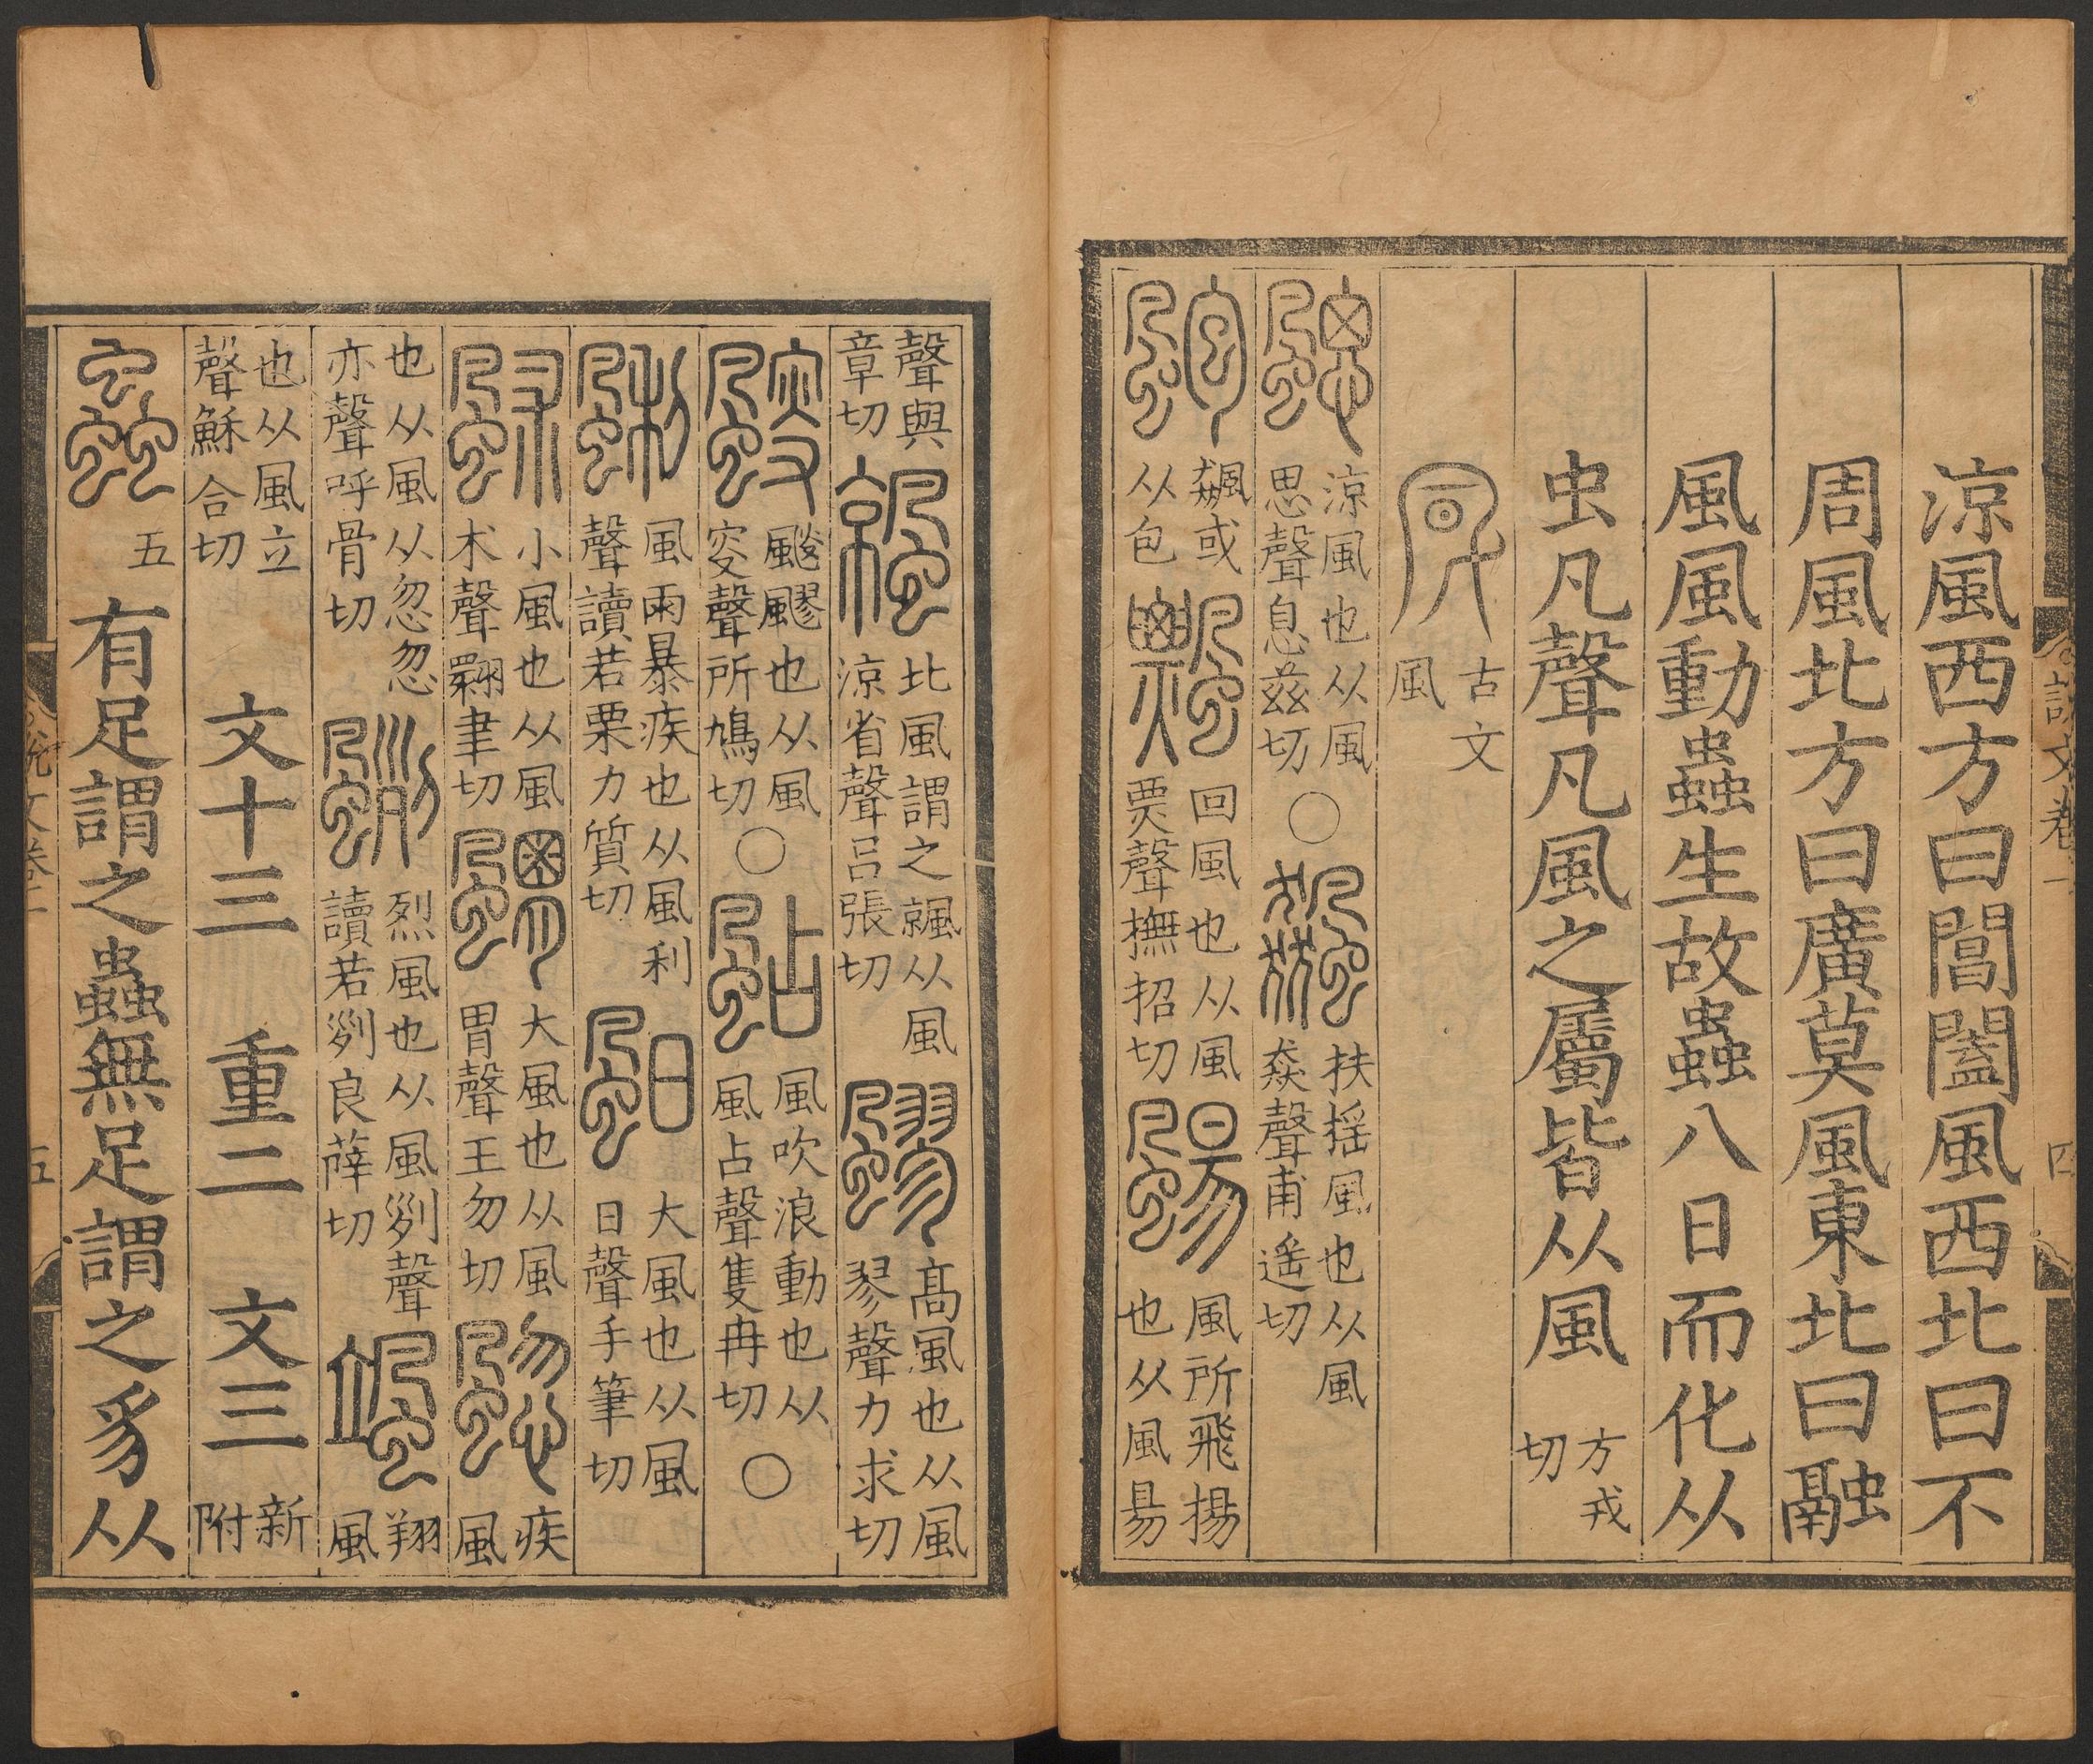 涼風西方曰閶闔風西北曰不
周風北方曰廣莫風東北曰融
風風動蟲生故蟲八日而化从
虫凡聲凡風之屬皆从風方戎切
古文風
颸涼風也从風思聲息兹切○飆扶揺風也从風猋聲甫遥切
颮飆或从包飄回風也从風票聲撫招切颺風所飛揚也从風昜
聲與章切𩗬北風謂之𩗬从風涼省聲呂張切飂高風也从風翏聲力求切
颼颼飂也从風叜聲所鳩切○颭風吹浪動也从風占聲隻冉切○
䬆風雨暴疾也从風利聲讀若栗力質切䫻大風也从風日聲手筆切
小風也从風术聲翾聿切䬑大風也从風胃聲王勿切䬍疾風
也从風从忽忽亦聲呼骨切颲烈風也从風𠛱聲讀若𠛱良薛切颯翔風
也从風立聲穌合切 文十三 重二 文三新附
蟲五 有足謂之蟲無足謂之豸从
說文卷
四
五